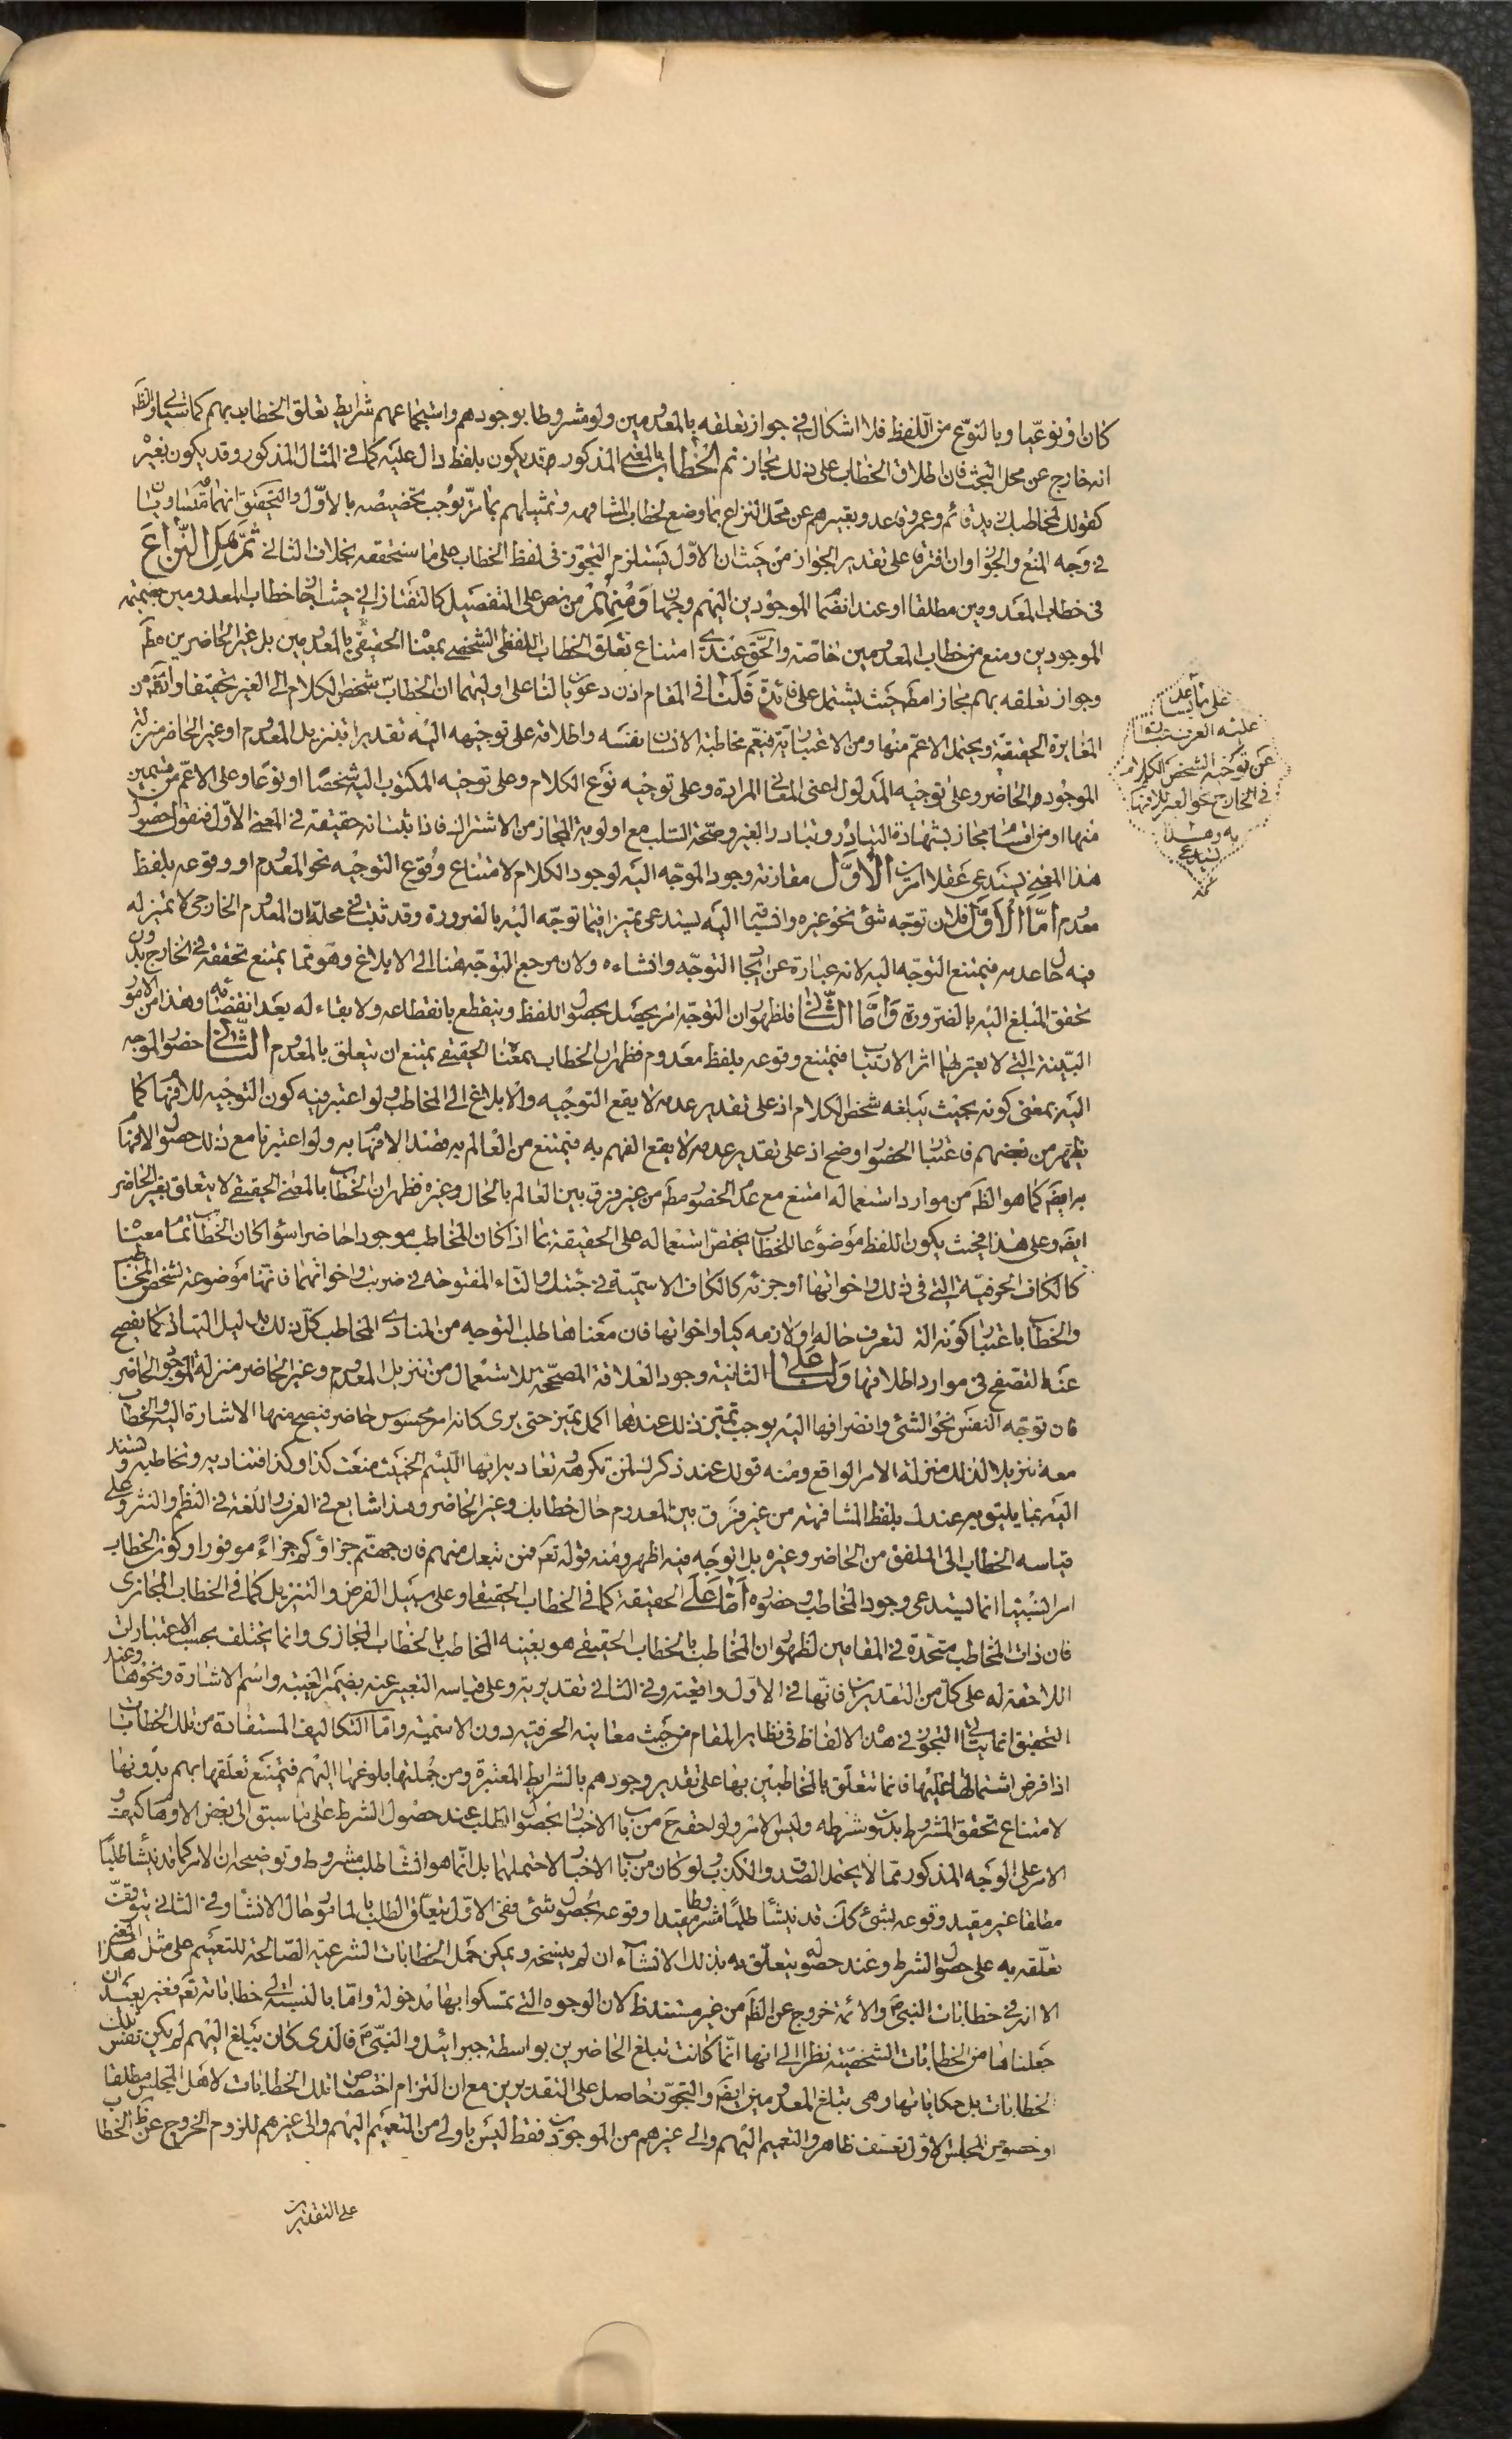 كان او نوعيا وبالنوع من اللفظ فلا اشكال في جواز تعلقه بالمعدومين ولو مشروطا بوجودهم واستجماعهم شرايط تعلق الخطاب بهم كما سيأتي والظ
انه خارج عن محل البحث فان اطلاق الخطاب على ذلك مجاز ثم الخطاب بالمعنى المذكور قد يكون بلفظ دال عليه كما في المثال المذكور وقد يكون بغيره
كقولك لمخاطبك زيد قائم وعمرو قاعد وتعبيرهم عن محل النزاع بما وضع لخطاب المشافهه وتمثيلهم بما مر يوجب تخصيصه بالاول والتحقيق انهما متساويان
في وجه المنع والجواز وان افترقا على تقدير الجواز من حيث ان الاول يستلزم التجوز في لفظ الخطاب على ما سنحققه بخلاف الثاني ثم هل النزاع
في خطاب المعدومين مطلقا او عند انضمام الموجودين اليهم وجهان ومنهم من نص على التفصيل كالتفتازاني حيث اجاز خطاب المعدومين بضميمة
الموجودين ومنع من خطاب المعدومين خاصة والحق عندي امتناع تعلق الخطاب اللفظي الشخصي بمعناه الحقيقي بالمعدومين بل غير الحاضرين مط
وجواز تعلقه بهم مجازا مط حيث يشتمل على فائدة فلنا في المقام اذن دعويان لنا على اوليهما ان الخطاب شخص الكلام الى الغير تحقيقا واقعه من
المغايرة الحقيقية ويحتمل الاعم منها ومن الاعتبارية فيعم مخاطبة الانسان نفسه واطلاقه على توجيهه اليه تقديرا بتنزيل المعدوم او غير الحاضر منزلة
الموجود والحاضر وعلى توجيه المدلول اعنى المعاني المرادة وعلى توجيه نوع الكلام وعلى توجيه المكتوب اليه شخصا او نوعا وعلى الاعم من قسمين
منها او من اقسام مجاز بشهادة التبادر وتبادر الغير وصحة السلب مع اولوية المجاز من الاشتراك فاذا ثبت انه حقيقة في المعنى الاول فنقول حصول
هذا المعنى يستدعي عقلا امرين الأول مقارنة وجود الموجه اليه لوجود الكلام لامتناع وقوع التوجيه نحو المعدوم او وقوعه بلفظ
معدوم أما الأول فلان توجه شئ نحو غيره وانسياقه اليه يستدعي تميزا فيما توجه اليه بالضرورة وقد ثبت في محله ان المعدوم الخارجي لا تميز له
فيه حال عدمه فيمتنع التوجه اليه لانه عبارة عن ايجاد التوجه وانشاءه ولان مرجع التوجه هنا الى الابلاغ وهو مما يمتنع تحققه في الخارج بدون
تحقق المبلغ اليه بالضرورة وأما الثاني فلظهور ان التوجه امر يحصل بحصول اللفظ وينقطع بانقطاعه ولا بقاء له بعد انقضائه وهذا من الامور
البينة التي لا يعتريها اثر الارتياب فيمتنع وقوعه بلفظ معدوم فظهر ان الخطاب بمعناه الحقيقي يمتنع ان يتعلق بالمعدوم الثاني حضور الموجه
اليه بمعنى كونه بحيث يبلغه شخص الكلام اذ على تقدير عدمه لا يقع التوجيه والابلاغ الى المخاطب ولو اعتبر فيه كون التوجيه للافهام كما
يظهر من بعضهم فاعتبار الحضور اوضح اذ على تقدير عدمه لا يقع الفهم به فيمتنع من العالم به قصد الافهام به ولو اعتبرنا مع ذلك حصول الافهام
به ايضا كما هو الظ من موارد استعماله امتنع مع عدم الحضور مط من غير فرق بين العالم بالحال وغيره فظهر ان الخطاب بالمعنى الحقيقي لا يتعلق بغير الحاضر
ايض وعلى هذا فحيث يكون اللفظ موضوعا للخطاب يختص استعماله على الحقيقة بما اذا كان المخاطب موجودا حاضرا سواء كان الخطاب تمام معناه
كالكاف الحرفية التي في ذلك واخواتها او جزئه كالكاف الاسمية في جئتك والتاء المفتوحة في ضربت واخواتهما فانها موضوعة لشخص المخاطب
والخطاب باعتبار كونه الة لتعرف حاله او لازمه كيا واخواتها فان معناها طلب التوجه من المنادى المخاطب كل ذلك بدليل التبادر كما يفصح
عنه التصفح في موارد اطلاقها ولنا على الثانية وجود العلاقة المصححة للاستعمال من تنزيل المعدوم وغير الحاضر منزلة الموجود الحاضر
فان توجه النفس نحو الشئ وانصرافها اليه يوجب تميز ذلك عندها اكمل تميز حتى يرى كانه امر محسوس حاضر فيصح منها الاشارة اليه والخطاب
معه تنزيلا لذلك منزلة الامر الواقع ومنه قولك عند ذكرك لمن تكرهه وتعاديه ايها اللئيم الخبيث منعت كذا وكذا فتناديه وتخاطبه وتسند
اليه بما يليق به عندك بلفظ المشافهة من غير فرق بين المعدوم حال خطابك وغير الحاضر وهذا شايع في العرف واللغة في النظم والنثر وعلى
قياسه الخطاب الى الملفق من الحاضر وغيره بل الوجه فيه اظهر ومنه قوله تعم فمن تبعك منهم فان جهنم جزاؤكم جزاء موفورا وكون الخطاب
امرا نسبيا انما يستدعي وجود المخاطب وحضوره أما على الحقيقة كما في الخطاب الحقيقي او على سبيل الفرض والتنزيل كما في الخطاب المجازى
فان ذات المخاطب متحدة في المقامين لظهور ان المخاطب بالخطاب الحقيقي هو بعينه المخاطب بالخطاب المجازى وانما يختلف بحسب الاعتبارات
اللاحقة له على كل من التقديرين فانها في الاول واقعية وفي الثاني تقديرية وعلى قياسه التعبير عنه بضمير الغيبة واسم الاشارة ونحوها وعند
التحقيق انما يتأتى التجوز في هذه الالفاظ في نظاير المقام من حيث معانيه الحرفية دون الاسمية واما التكاليف المستفادة من تلك الخطابات
اذا فرض اشتمالها عليها فانما تتعلق بالمخاطبين بها على تقدير وجودهم بالشرايط المعتبرة ومن جملتها بلوغها اليهم فيمتنع تعلقها بهم بدونها
لامتناع تحقق المشروط بدون شرطه وليس الامر ولو لحقه ح من باب الاخبار بحصول الطلب عند حصول الشرط على ما سبق الى بعض الاوهام كيف
الامر على الوجه المذكور مما لا يحتمل الصدق والكذب ولو كان من باب الاخبار لاحتملهما بل انما هو انشاء طلب مشروط وتوضيحه ان الامر كما قد ينشأ طلبا
مطلقا غير مقيد وقوعه بشئ كك قد ينشأ طلبا مشروطا مقيدا وقوعه بحصول شئ ففى الاول يتعلق الطلب بالمامور حال الانشاء وفي الثاني يتوقف
تعلقه به على حصول الشرط وعند حصوله يتعلق به بذلك الانشاء ان لم ينسخه ويمكن حمل الخطابات الشرعية الصالحة للتعميم على مثل هذا المعنى
الا انه في خطابات النبي ص والائمة خروج عن الظ من غير مستند ظ لان الوجوه التي تمسكوا بها مدخولة واما بالنسبة الى خطاباته تعم فغير بعيد ان
جعلناها من الخطابات الشخصية نظرا الى انها انما كانت تبلغ الحاضرين بواسطة جبرائيل والنبي ص فالذى كان يبلغ اليهم لم يكن نفس تلك
الخطابات بل حكاياتها وهى تبلغ المعدومين ايض والتجوز حاصل على التقديرين مع ان التزام اختصاص تلك الخطابات لاهل المجلس مطلقا
او خصوص المجلس الاول تعسف ظاهر والتعميم اليهم والى غيرهم من الموجودين فقط ليس باولى من التعميم اليهم والى غيرهم للزوم الخروج عن ظ الخطاب
على التقديرين
على ما يساعد
عليه العرف عبارة
عن توجيه الشخص الكلام
في الخارج نحو الغير للافهام
به وهذا
يستدعى